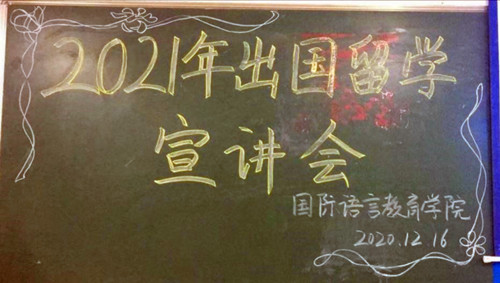 2021年出国留学
宣讲会
国际语言教育学院
2020.12.16